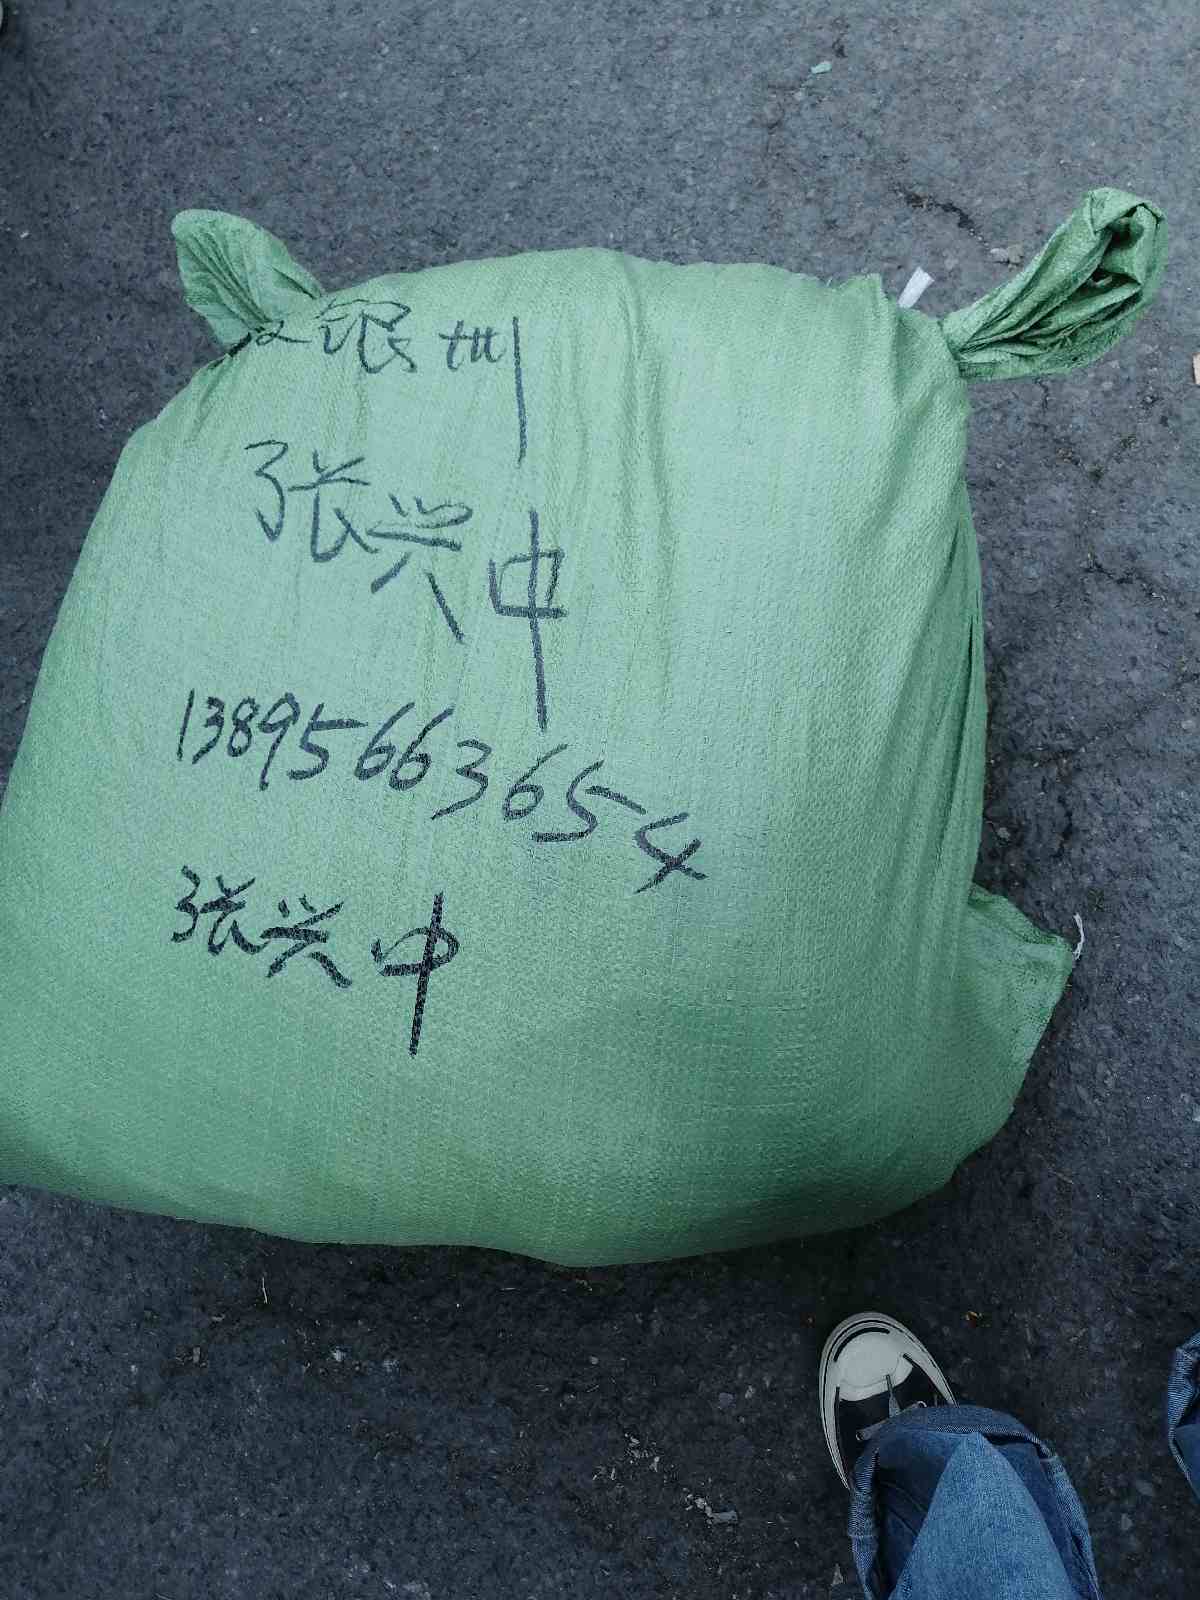 银
张兴中
13895663654
张兴中